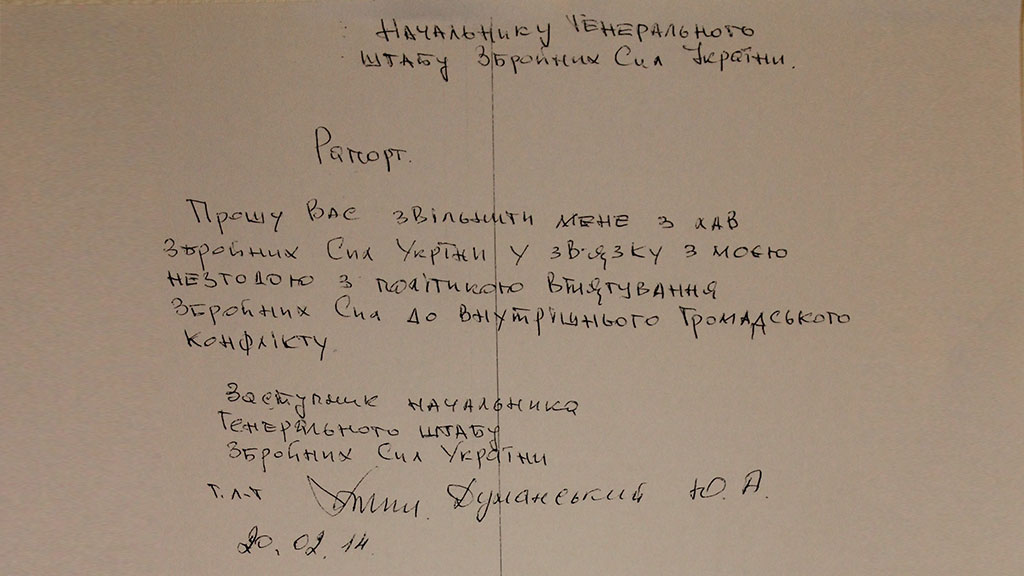 Начальнику Генерального
штабу Збройних Сил України.
Рапорт.
Прошу Вас звільнити мене з лав
Збройних Сил Укріни у зв'язку з моєю
незгодою з політикою втягування
Збройних Сил до внутрішнього громадського
конфлікту
Заступник начальника
Генерального штабу
Збройних Сил України
г.л-т Думанський Ю. А.
20.02.14